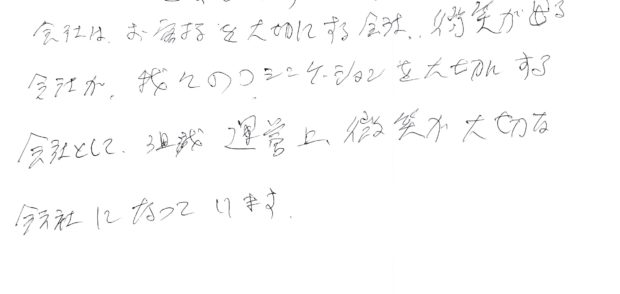 会社は、お客様を大切にする会社、微笑が出る
会社が、我々のコミニケーションを大切にする
会社として、組織運営上、微笑が大切な
会社になっています。